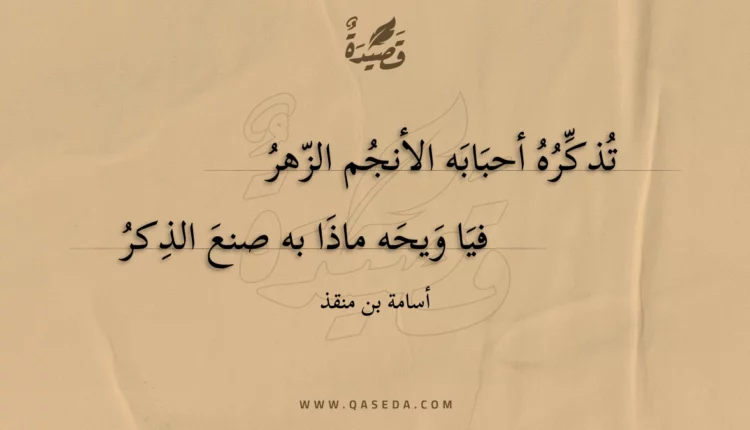 قَصِيْدَةٌ
تُذكِّرُهُ أحبَابَه الأنجُم الزّهرُ
فيَا وَيحَه ماذَا به صنعَ الذِكرُ
أسامة بن منقذ
WWW.QASEDA.COM